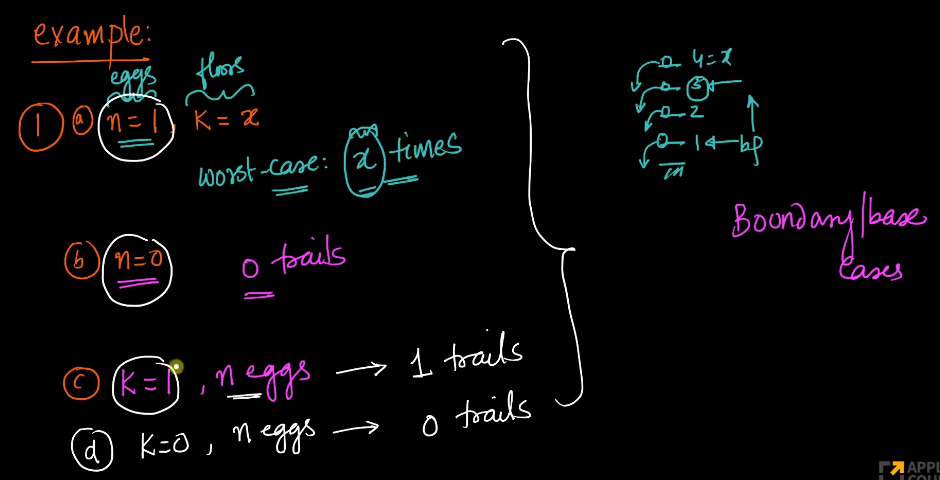 example:
eggs floors
1 a n = 1, K = x
worst-case: x times
b n=0 0 trails
c K=1, n eggs → 1 trails
d K=0, n eggs → 0 trails
4 = x
3
2
1 ← bp
Boundary/base
Cases
APPL
COU